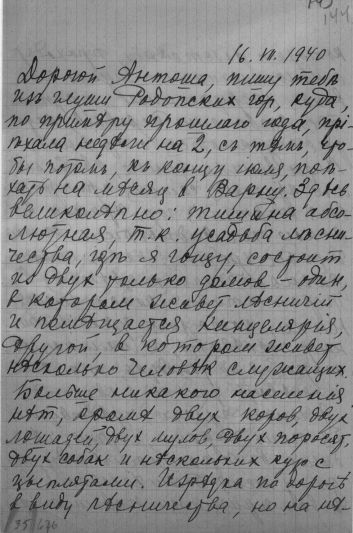 144
16. VII. 1940
Дорогой Антоша, пишу тебѣ
изъ глуши Родопских гор, куда,
по примѣру прошлаго года, прі-
ѣхала недѣли на 2, съ тѣмъ, что-
бы потомъ, къ концу іюля, поѣ-
хать на мѣсяц в Варну. Здѣсь
великолѣпно: тишина абсо-
лютная, т.к. усадьба лѣсни-
чества, гдѣ я гощу, состоит
из двух только домов – один,
в котором живет лѣсничій
и помѣщается канцелярія,
другой, в котором живет
нѣсколько человѣк служащих.
Больше никакого населенія
нѣт, кромѣ двух коров, двух
лошадей, двух мулов, двух поросят,
двух собак и нѣскольких кур с
цыплятами. Изрѣдка по дорогѣ
в виду лѣсничества, но на нѣ-
35/676